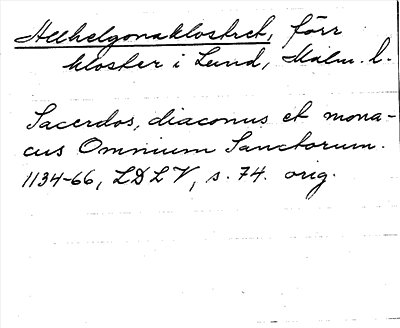 Allhelgonaklostret, förr
kloster i Lund, Malm. l.
Sacerdos, diaconus et mona-
cus Omnium Sanctorum.
1134-66, LDLV, s. 74. orig.